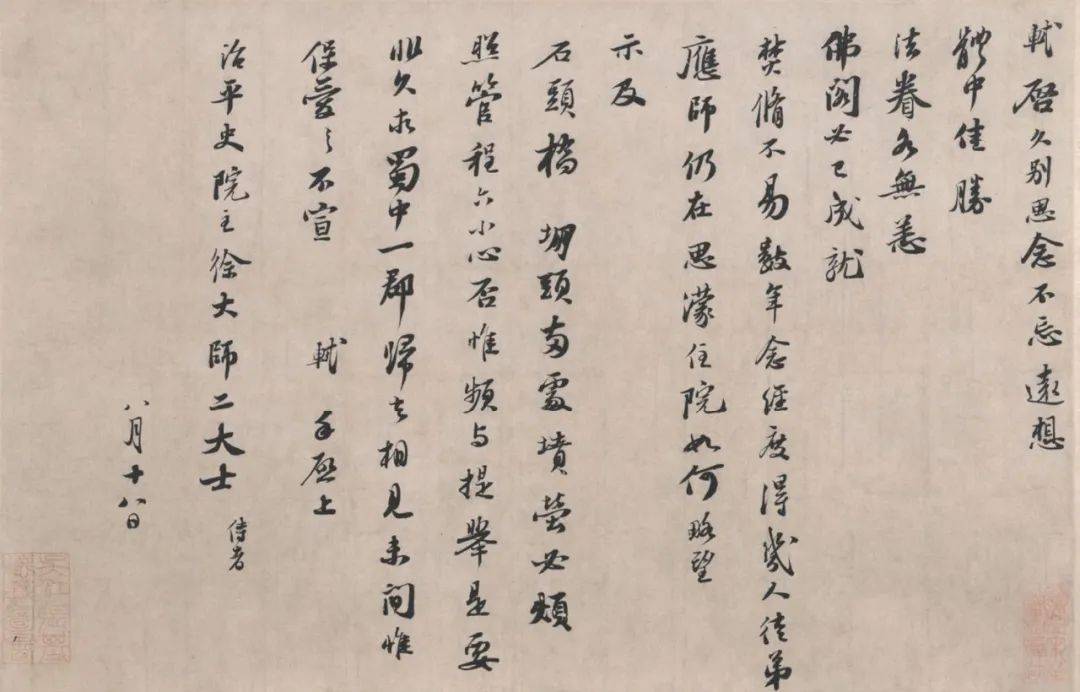 軾啓久別思念不忘遠想
體中佳勝
法眷各無恙
佛閣必已成就
焚脩不易數年念經度得幾人徒弟
應師仍在思濛住院如何略望
示及
石頭橋 堋頭兩處墳塋必煩
照管程六小心否惟頻与提舉是要
非久求蜀中一郡歸去相見未間惟
保愛之不宣 軾手啓上
治平史院主徐大師二大士侍者
八月十八日